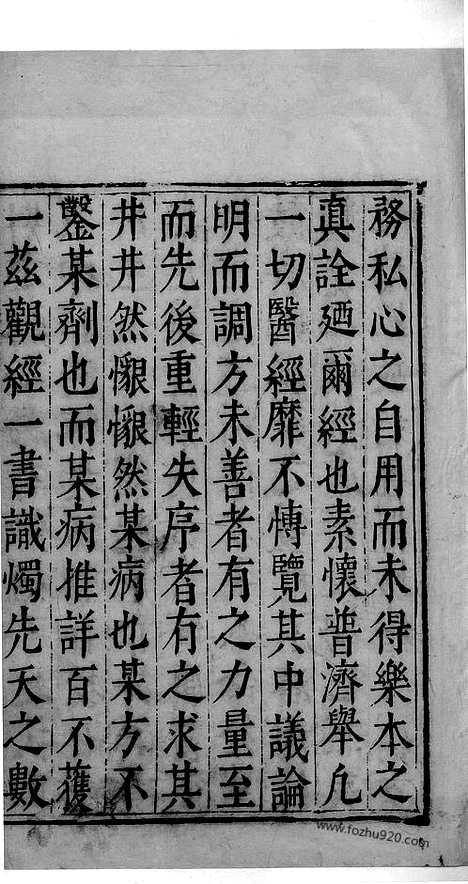 務私心之自用而未得樂本之
真詮廼爾經也素懷普濟舉凡
一切醫經靡不慱覽其中議論
明而調方未善者有之力量至
而先後重輕失序者有之求其
井井然懇懇然某病也某方不
鑿某劑也而某病推詳百不獲
一茲觀經一書識燭先天之數
www.fozhu920.com